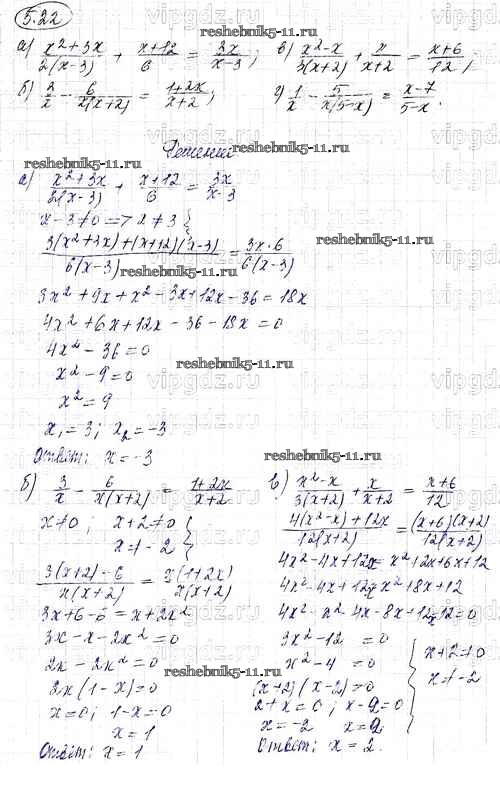 5.22
а) (x²+3x)/(2(x-3)) + (x+12)/6 = 3x/(x-3); в) (x²-x)/(3(x+2)) + x/(x+2) = (x+6)/12;
б) 3/x - 6/(x(x+2)) = (1+2x)/(x+2); г) 1/x - 5/(x(5-x)) = (x-7)/(5-x).
Решение
reshebnik5-11.ru
а) (x²+3x)/(2(x-3)) + (x+12)/6 = 3x/(x-3)
x-3≠0 => x≠3 {
(3(x²+3x)+(x+12)(x-3))/(6(x-3)) = (3x·6)/(6(x-3))
3x²+9x+x²-3x+12x-36=18x
4x²+6x+12x-36-18x=0
4x²-36=0
x²-9=0
x²=9
x₁=3; x₂=-3
Ответ: x=-3
б) 3/x - 6/(x(x+2)) = (1+2x)/(x+2)
x≠0; x+2≠0
x≠-2
(3(x+2)-6)/(x(x+2)) = (x(1+2x))/(x(x+2))
3x+6-6=x+2x²
3x-x-2x²=0
2x-2x²=0
2x(1-x)=0
x=0; 1-x=0
x=1
Ответ: x=1
в) (x²-x)/(3(x+2)) + x/(x+2) = (x+6)/12
(4(x²-x)+12x)/(12(x+2)) = ((x+6)(x+2))/(12(x+2))
4x²-4x+12x=x²+2x+6x+12
4x²-4x+12x=x²+8x+12
4x²-x²-4x-8x+12x-12=0
3x²-12=0
x²-4=0
(x+2)(x-2)=0
2+x=0; x-2=0
x=-2 x=2
x+2≠0
x≠-2
Ответ: x=2.
reshebnik5-11.ru
vipgdz.ru